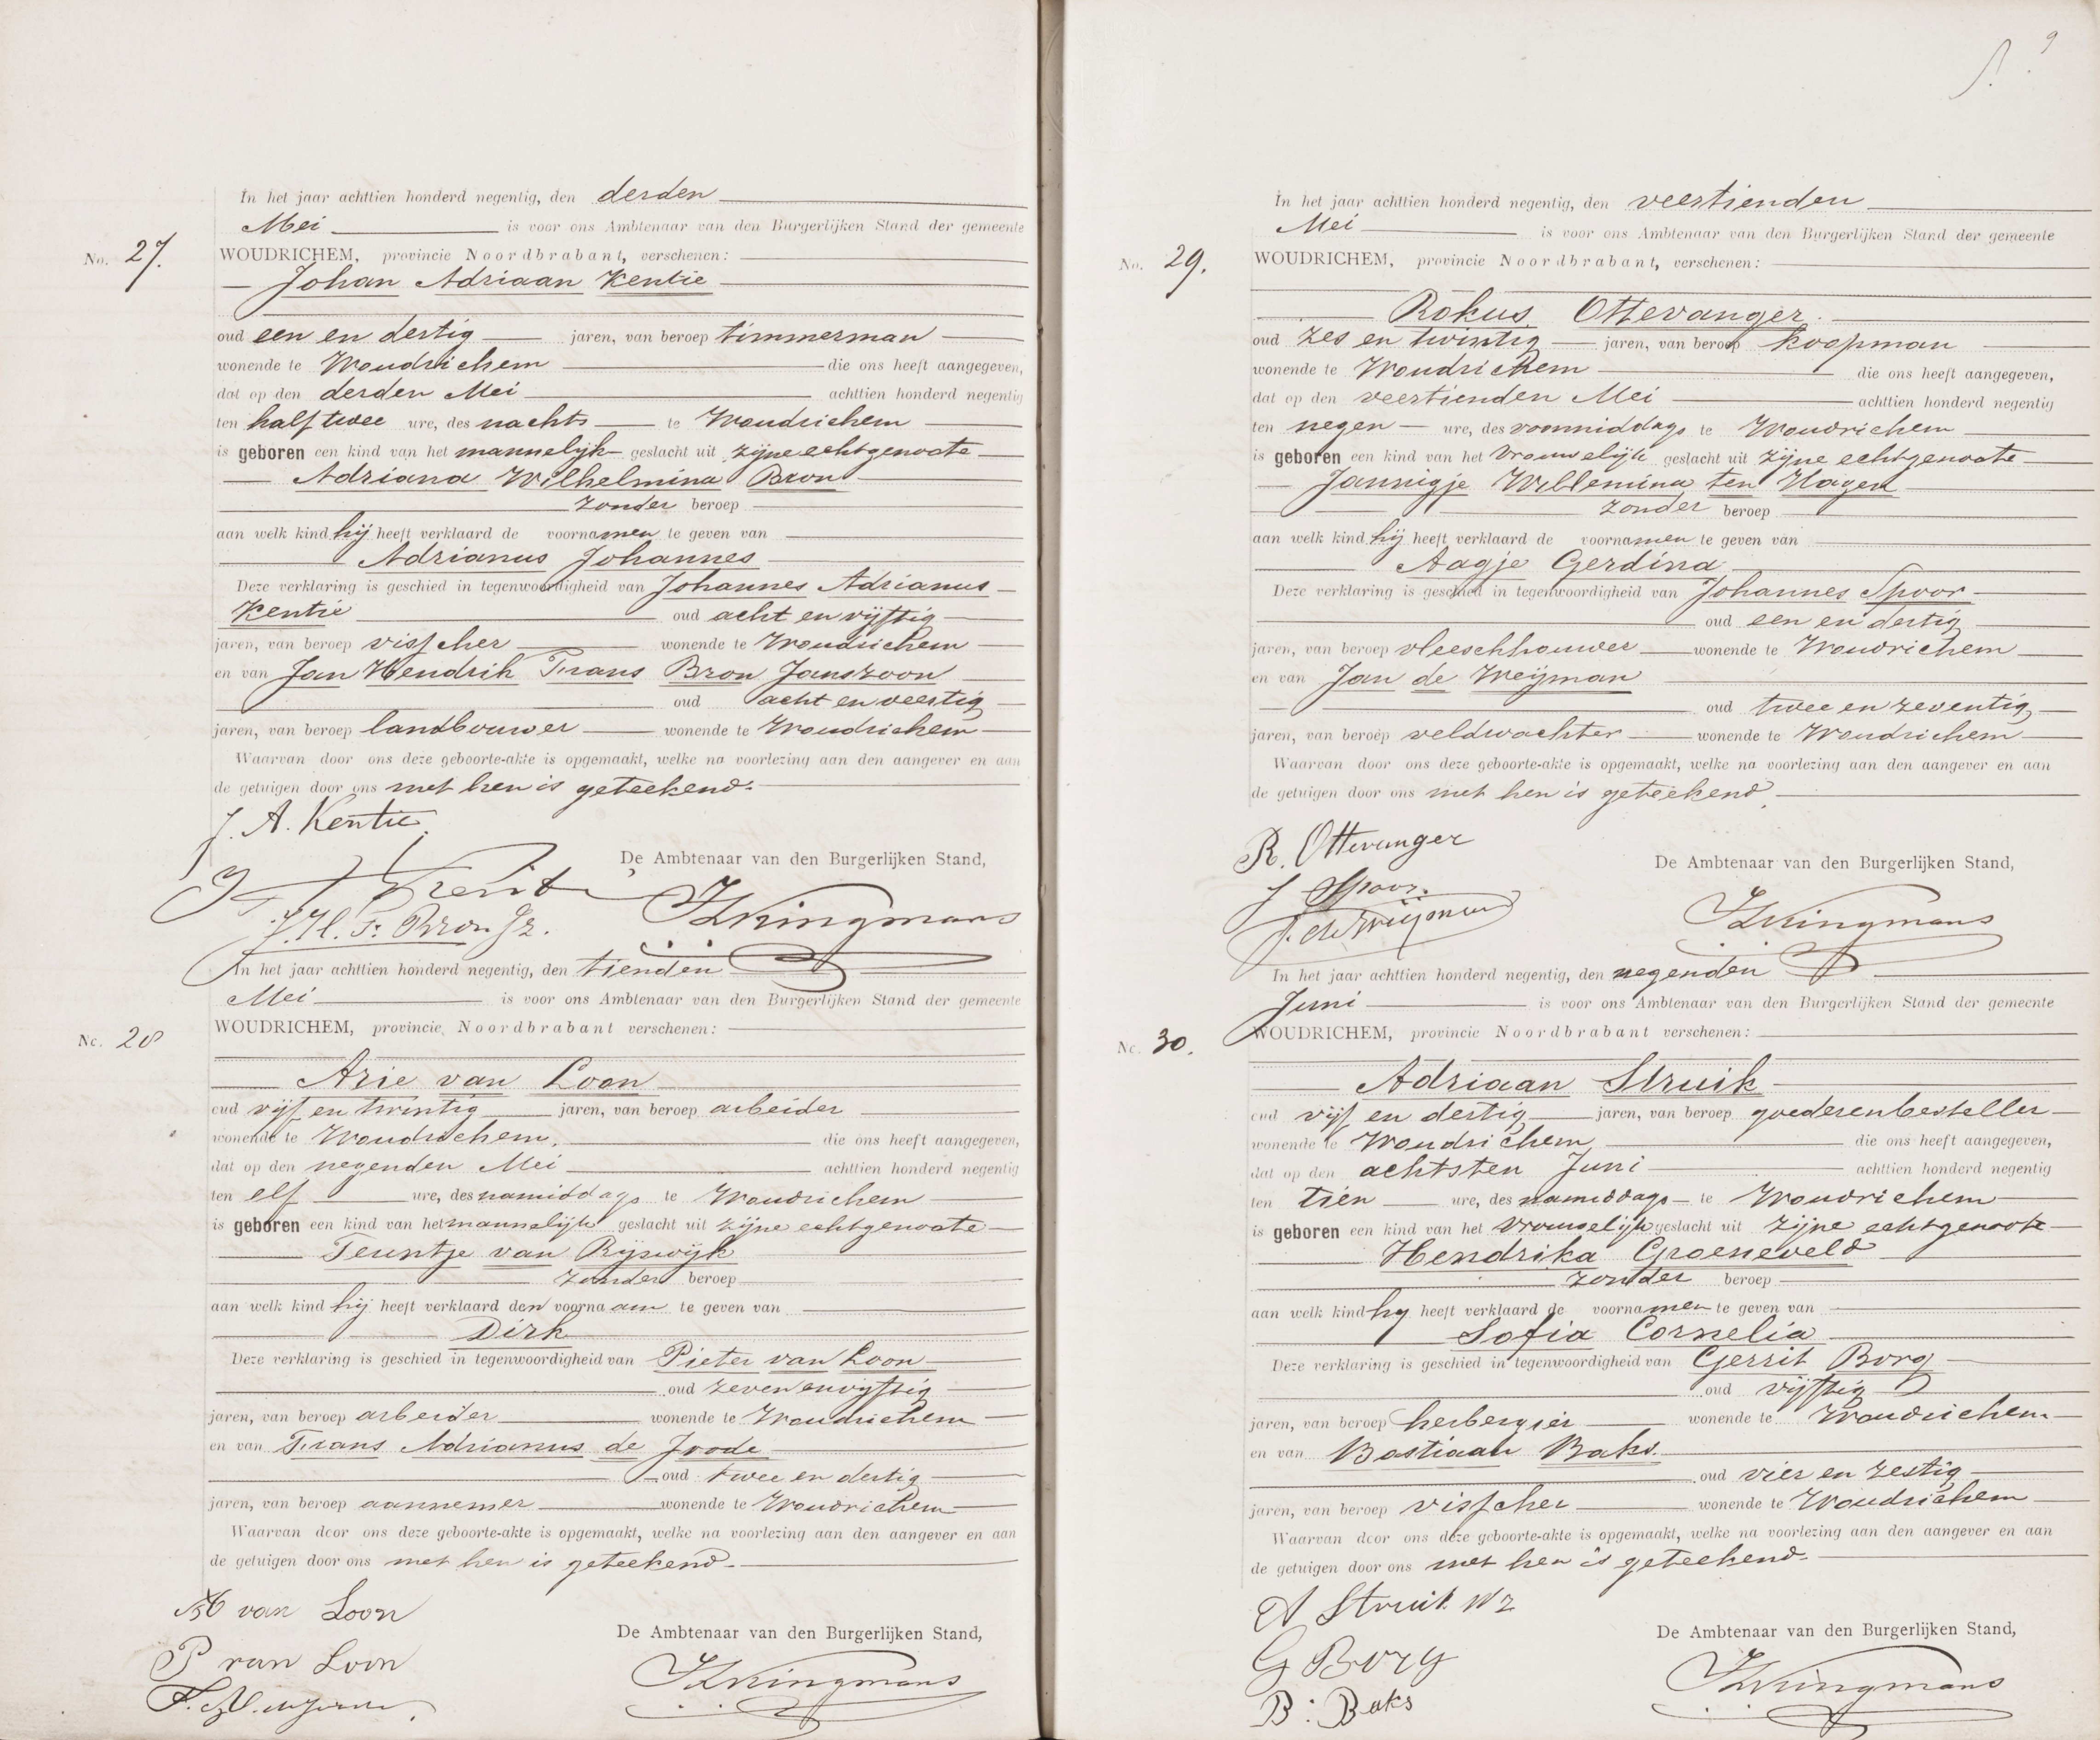 In het jaar achttien honderd negentig, den derden
Mei is voor ons Ambtenaar van den Burgerlijken Stand der gemeente
No. 27. WOUDRICHEM, provincie Noordbrabant, verschenen:
Johan Adriaan Kentie
oud een en dertig jaren, van beroep timmerman
wonende te Woudrichem die ons heeft aangegeven,
dat op den derden Mei achttien honderd negentig
ten half twee ure, des nachts te Woudrichem
is geboren een kind van het mannelijk geslacht uit zijne echtgenoote
Adriana Wilhelmina Bron
zonder beroep
aan welk kind hij heeft verklaard de voornamen te geven van
Adrianus Johannes
Deze verklaring is geschied in tegenwoordigheid van Johannes Adrianus
Kentie oud acht en vijftig
jaren, van beroep visscher wonende te Woudrichem
en van Jan Hendrik Frans Bron Janszoon
oud acht en veertig
jaren, van beroep landbouwer wonende te Woudrichem
Waarvan door ons deze geboorte-akte is opgemaakt, welke na voorlezing aan den aangever en aan
de getuigen door ons met hen is geteekend.
J. A. Kentie.
De Ambtenaar van den Burgerlijken Stand,
J A Kentie
J. H. F. Bron Jz.
In het jaar achttien honderd negentig, den tienden
Mei is voor ons Ambtenaar van den Burgerlijken Stand der gemeente
No. 28 WOUDRICHEM, provincie Noordbrabant verschenen:
Arie van Loon
oud vijf en twintig jaren, van beroep arbeider
wonende te Woudrichem. die ons heeft aangegeven,
dat op den negenden Mei achttien honderd negentig
ten elf ure, des namiddags te Woudrichem
is geboren een kind van het mannelijk geslacht uit zijne echtgenoote
Teuntje van Rijswijk
zonder beroep
aan welk kind hij heeft verklaard den voornaam te geven van
Dirk
Deze verklaring is geschied in tegenwoordigheid van Pieter van Loon
oud zeven en vijftig
jaren, van beroep arbeider wonende te Woudrichem
en van Frans Adrianus de Joode
oud twee en dertig
jaren, van beroep aannemer wonende te Woudrichem
Waarvan door ons deze geboorte-akte is opgemaakt, welke na voorlezing aan den aangever en aan
de getuigen door ons met hen is geteekend.
A van Loon
De Ambtenaar van den Burgerlijken Stand,
P van Loon
9
In het jaar achttien honderd negentig, den veertienden
Mei is voor ons Ambtenaar van den Burgerlijken Stand der gemeente
No. 29. WOUDRICHEM, provincie Noordbrabant, verschenen:
Rokus Ottevanger
oud zes en twintig jaren, van beroep koopman
wonende te Woudrichem die ons heeft aangegeven,
dat op den veertienden Mei achttien honderd negentig
ten negen ure, des voormiddags te Woudrichem
is geboren een kind van het vrouwelijk geslacht uit zijne echtgenoote
Jannigje Willemina ten Hagen
zonder beroep
aan welk kind hij heeft verklaard de voornamen te geven van
Aagje Gerdina
Deze verklaring is geschied in tegenwoordigheid van Johannes Spoor
oud een en dertig
jaren, van beroep vleeschhouwer wonende te Woudrichem
en van Jan de Weijman
oud twee en zeventig
jaren, van beroep veldwachter wonende te Woudrichem
Waarvan door ons deze geboorte-akte is opgemaakt, welke na voorlezing aan den aangever en aan
de getuigen door ons met hen is geteekend.
R. Ottevanger
De Ambtenaar van den Burgerlijken Stand,
J Spoor.
J. de Weijman
In het jaar achttien honderd negentig, den negenden
Juni is voor ons Ambtenaar van den Burgerlijken Stand der gemeente
No. 30. WOUDRICHEM, provincie Noordbrabant verschenen:
Adriaan Struik
oud vijf en dertig jaren, van beroep goederenbesteller
wonende te Woudrichem die ons heeft aangegeven,
dat op den achtsten Juni achttien honderd negentig
ten tien ure, des namiddags te Woudrichem
is geboren een kind van het vrouwelijk geslacht uit zijne echtgenoote
Hendrika Groeneveld
zonder beroep
aan welk kind hij heeft verklaard de voornamen te geven van
Sofia Cornelia
Deze verklaring is geschied in tegenwoordigheid van Gerrit Borg
oud vijftig
jaren, van beroep herbergier wonende te Woudrichem
en van Bastiaan Baks.
oud vier en zestig
jaren, van beroep visscher wonende te Woudrichem
Waarvan door ons deze geboorte-akte is opgemaakt, welke na voorlezing aan den aangever en aan
de getuigen door ons met hen is geteekend.
A Struik Wz
De Ambtenaar van den Burgerlijken Stand,
G Borg
B: Baks